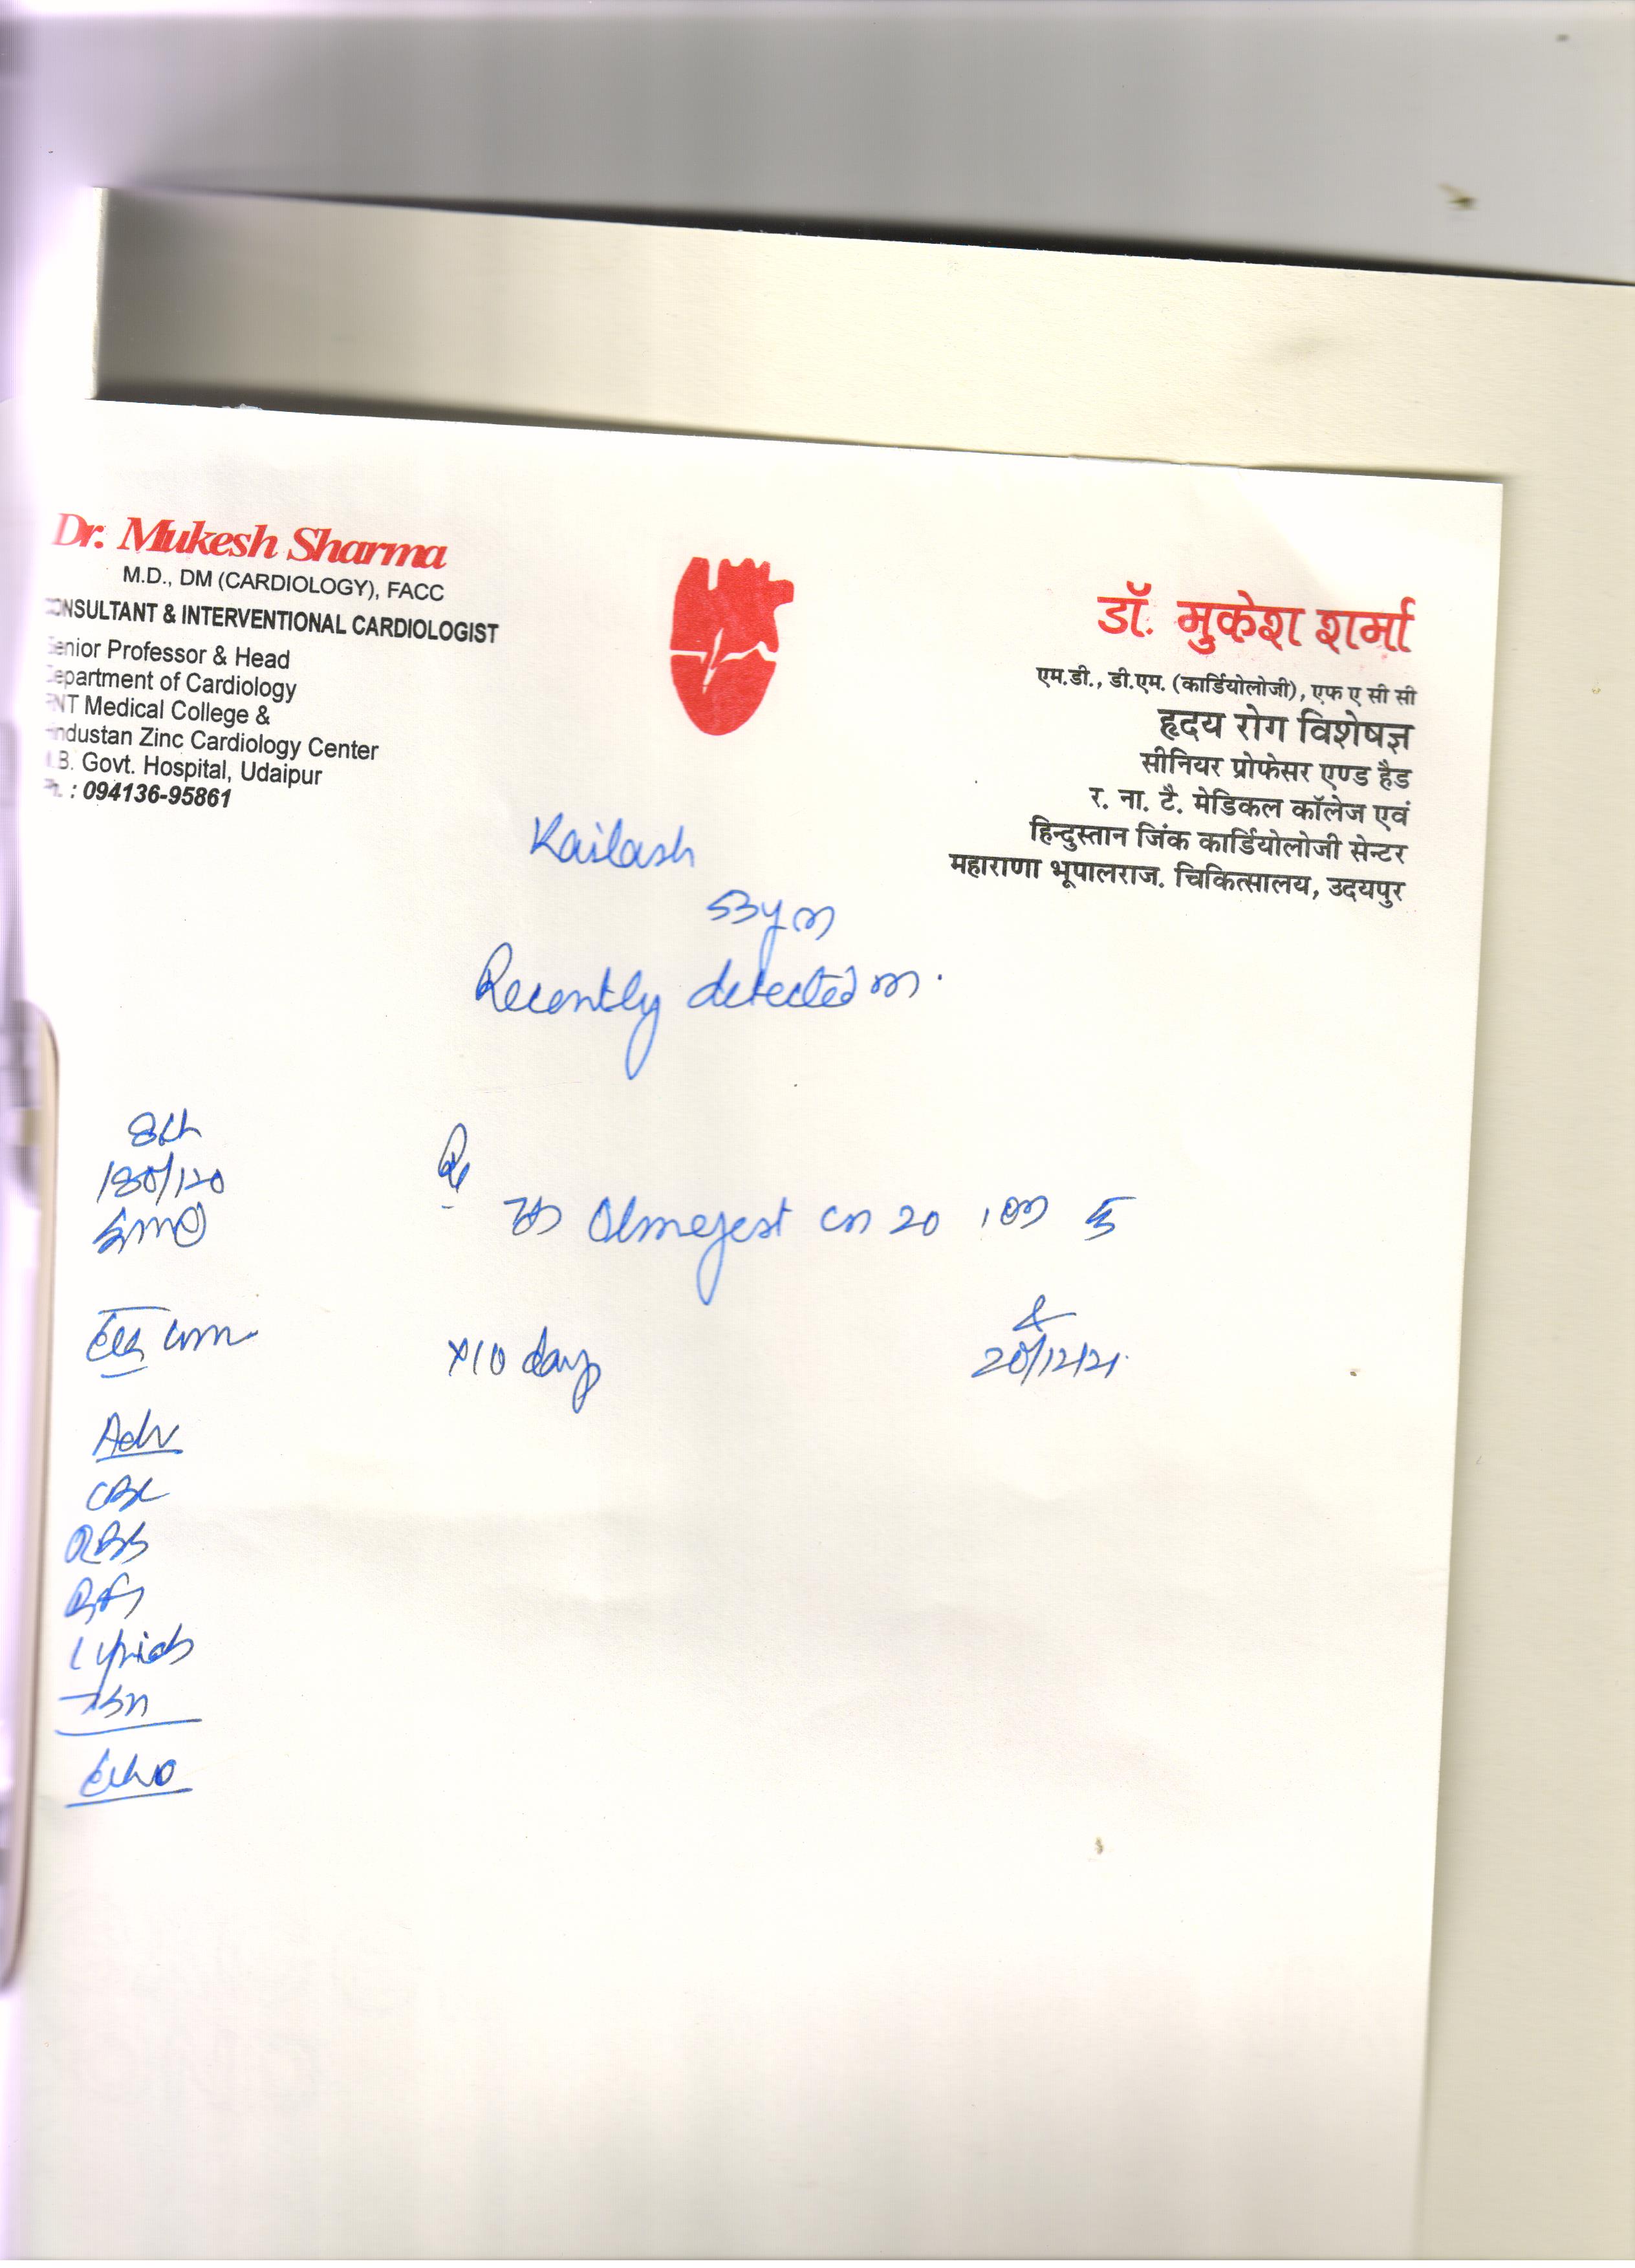 Dr. Mukesh Sharma
M.D., DM (CARDIOLOGY), FACC
CONSULTANT & INTERVENTIONAL CARDIOLOGIST
Senior Professor & Head
Department of Cardiology
RNT Medical College &
Hindustan Zinc Cardiology Center
M.B. Govt. Hospital, Udaipur
: 094136-95861
डॉ. मुकेश शर्मा
एम.डी., डी.एम. (कार्डियोलोजी), एफ ए सी सी
हृदय रोग विशेषज्ञ
सीनियर प्रोफेसर एण्ड हैड
र. ना. टै. मेडिकल कॉलेज एवं
हिन्दुस्तान जिंक कार्डियोलोजी सेन्टर
महाराणा भूपालराज. चिकित्सालय, उदयपुर
Kailash
53y m
Recently detected
180/120
Rx
Olmejest 20
x10 days
20/12/21
Adv
CBC
RBS
RFT
Lipids
TSH
Echo